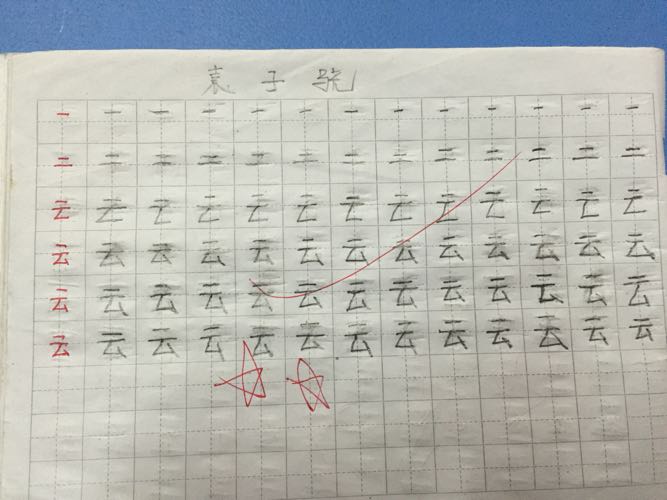 袁 子 骁
一 一 一 一 一 一 一 一 一 一 一 一 一
二 二 二 二 二 二 二 二 二 二 二 二 二
云 云 云 云 云 云 云 云 云 云 云 云 云
云 云 云 云 云 云 云 云 云 云 云 云 云
云 云 云 云 云 云 云 云 云 云 云 云 云